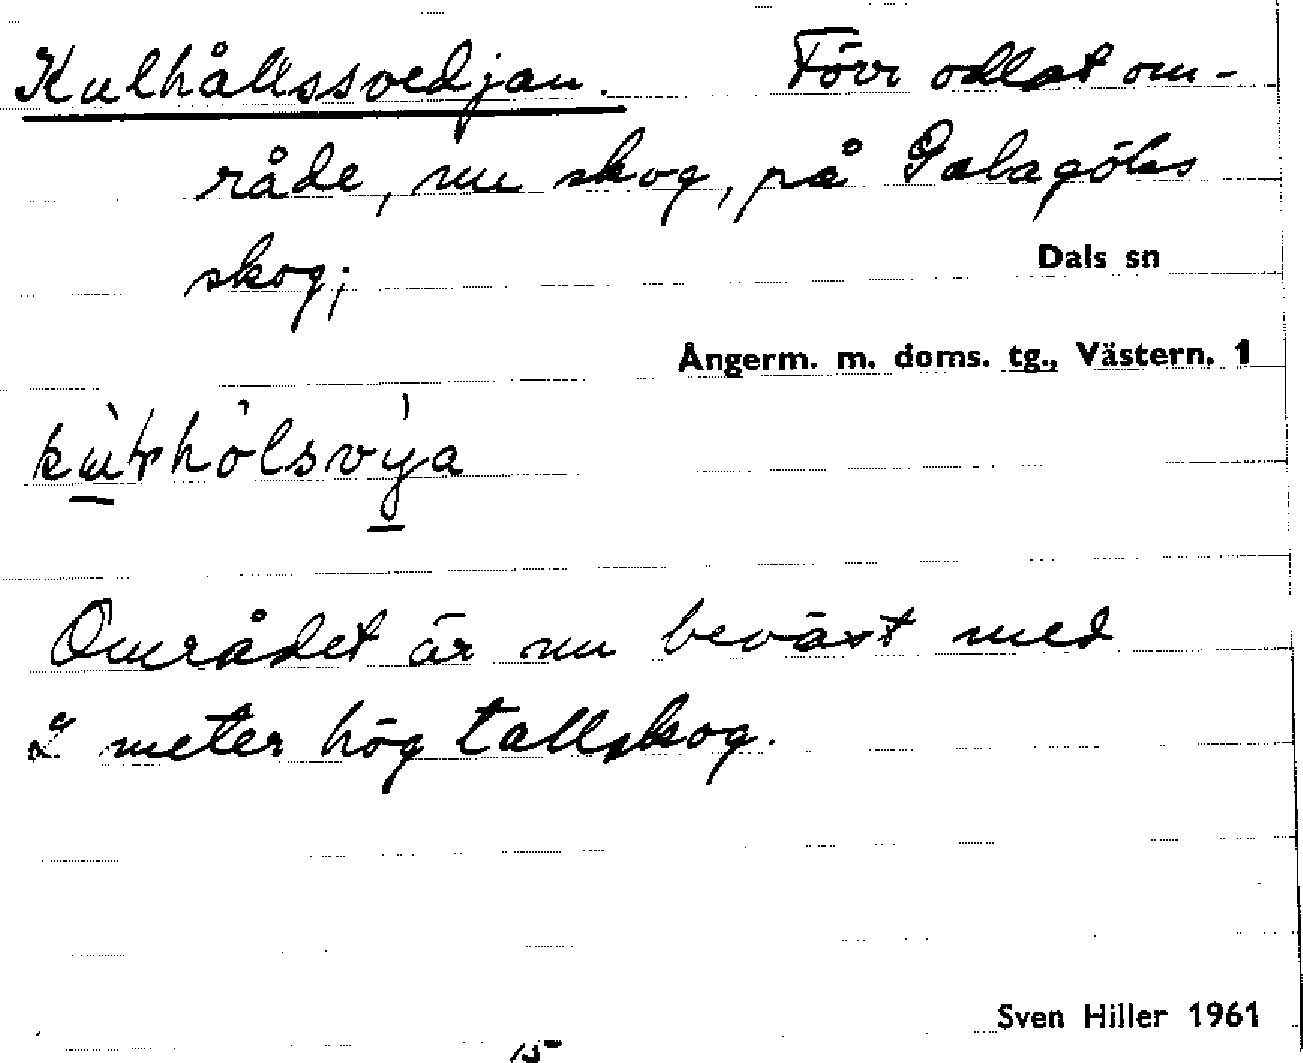 Kulhållssvedjan. Förr odlat om-
råde, nu skog, på Galagöles
skog;
Dals sn
Ångerm. m. doms. tg., Västern. 1
Området är nu beväxt med
2 meter hög tallskog.
Sven Hiller 1961
15